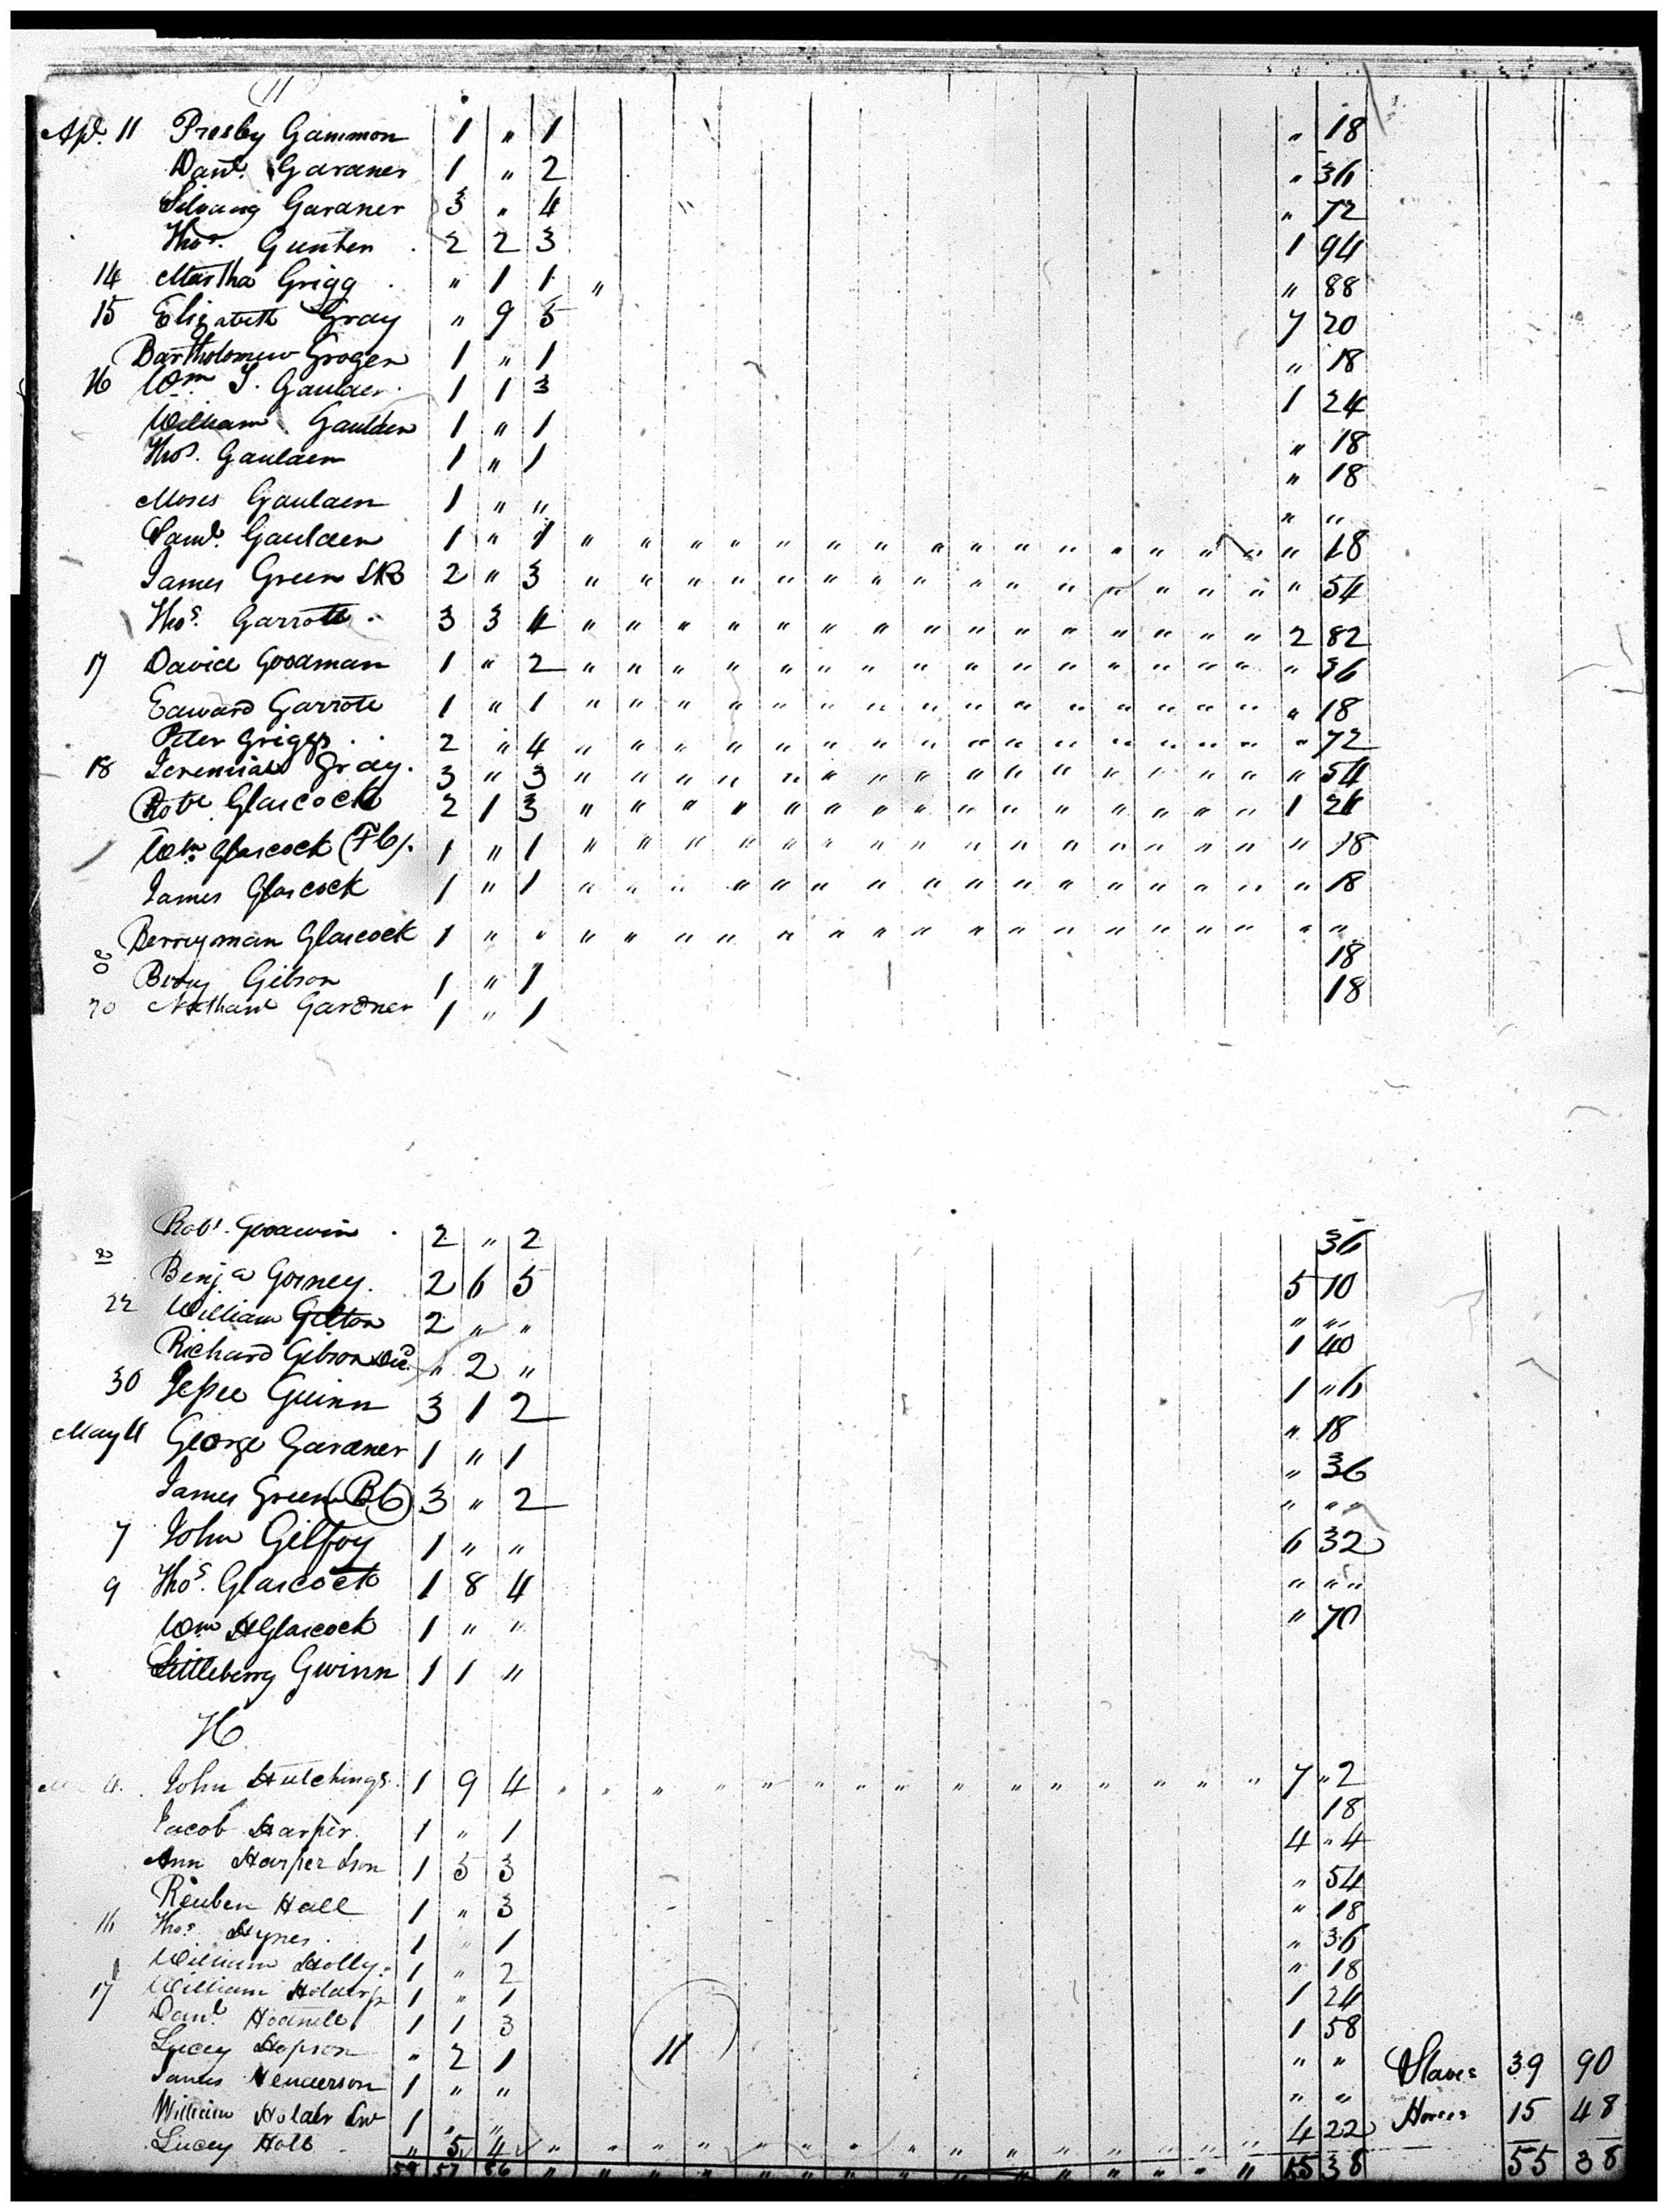 11
Apl. 11 Presby Gammon 1 " 1 " 18
Danl. Gardner 1 " 2 " 36
Silvang Gardner 3 " 4 " 72
Thos. Gunter 2 2 3 1 94
14 Martha Grigg " 1 1 " " 88
15 Elizabeth Gray " 9 5 7 20
Bartholomew Grogen 1 " 1 " 18
16 Wm. S. Gaulden 1 1 3 1 24
William Gaulden 1 " 1 " 18
Thos. Gaulden 1 " 1 " 18
Moses Gaulden 1 " " " "
Saml. Gaulden 1 " 1 " " " " " " " " " " " " " " " 18
James Green SKB 2 " 3 " " " " " " " " " " " " " " " 54
Thos. Garrott 3 3 4 " " " " " " " " " " " " " " " 2 82
17 David Goodman 1 " 2 " " " " " " " " " " " " " " " " 36
Edward Garrott 1 " 1 " " " " " " " " " " " " " " " " 18
Peter Griggs 2 " 4 " " " " " " " " " " " " " " " " 72
18 Jeremiah Gray 3 " 3 " " " " " " " " " " " " " " " " 54
Robt. Glascock 2 1 3 " " " " " " " " " " " " " " " 1 24
Wm. Glascock (FC) 1 " 1 " " " " " " " " " " " " " " " " 18
James Glascock 1 " 1 " " " " " " " " " " " " " " " " 18
Berryman Glascock 1 " " " " " " " " " " " " " " " " " " "
20 Gibson 1 " 1 18
20 Nathanl Gardner 1 " 1 18
Robt. Goodwin 2 " 2 36
Benja Gorney 2 6 5 5 10
22 William Gilton 2 " " " "
Richard Gibson Decd. " 2 " 1 40
30 Jessee Guinn 3 1 2 1 " 6
May 4 George Gardner 1 " 1 " 18
James Green (BC) 3 " 2 " 36
7 John Gilfoy 1 " " " "
9 Thos. Glascock 1 8 4 6 32
Wm H Glascock 1 " " " "
Littleberry Gwinn 1 1 " " 70
H
4 John Hutchings 1 9 4 " " " " " " " " " " " " " " " 7 " 2
Jacob Harper 1 " 1 18
Ann Harper Son 1 5 3 4 " 4
Reuben Hall 1 " 3 " 54
16 Thos. Hynes 1 " 1 " 18
William Holly 1 " 2 " 36
17 William 1 " 1 " 18
Danl. 1 1 3 1 24
Lucey Hopson " 2 1 11 1 58
James Henderson 1 " " " " Slaves 39 90
William Holder 1 " " " " Horses 15 48
Lucey Holt " 5 4 " " " " " " " " " " " " " " " 4 22
59 57 86 " " " " " " " " " " " " " " 55 38 55 38